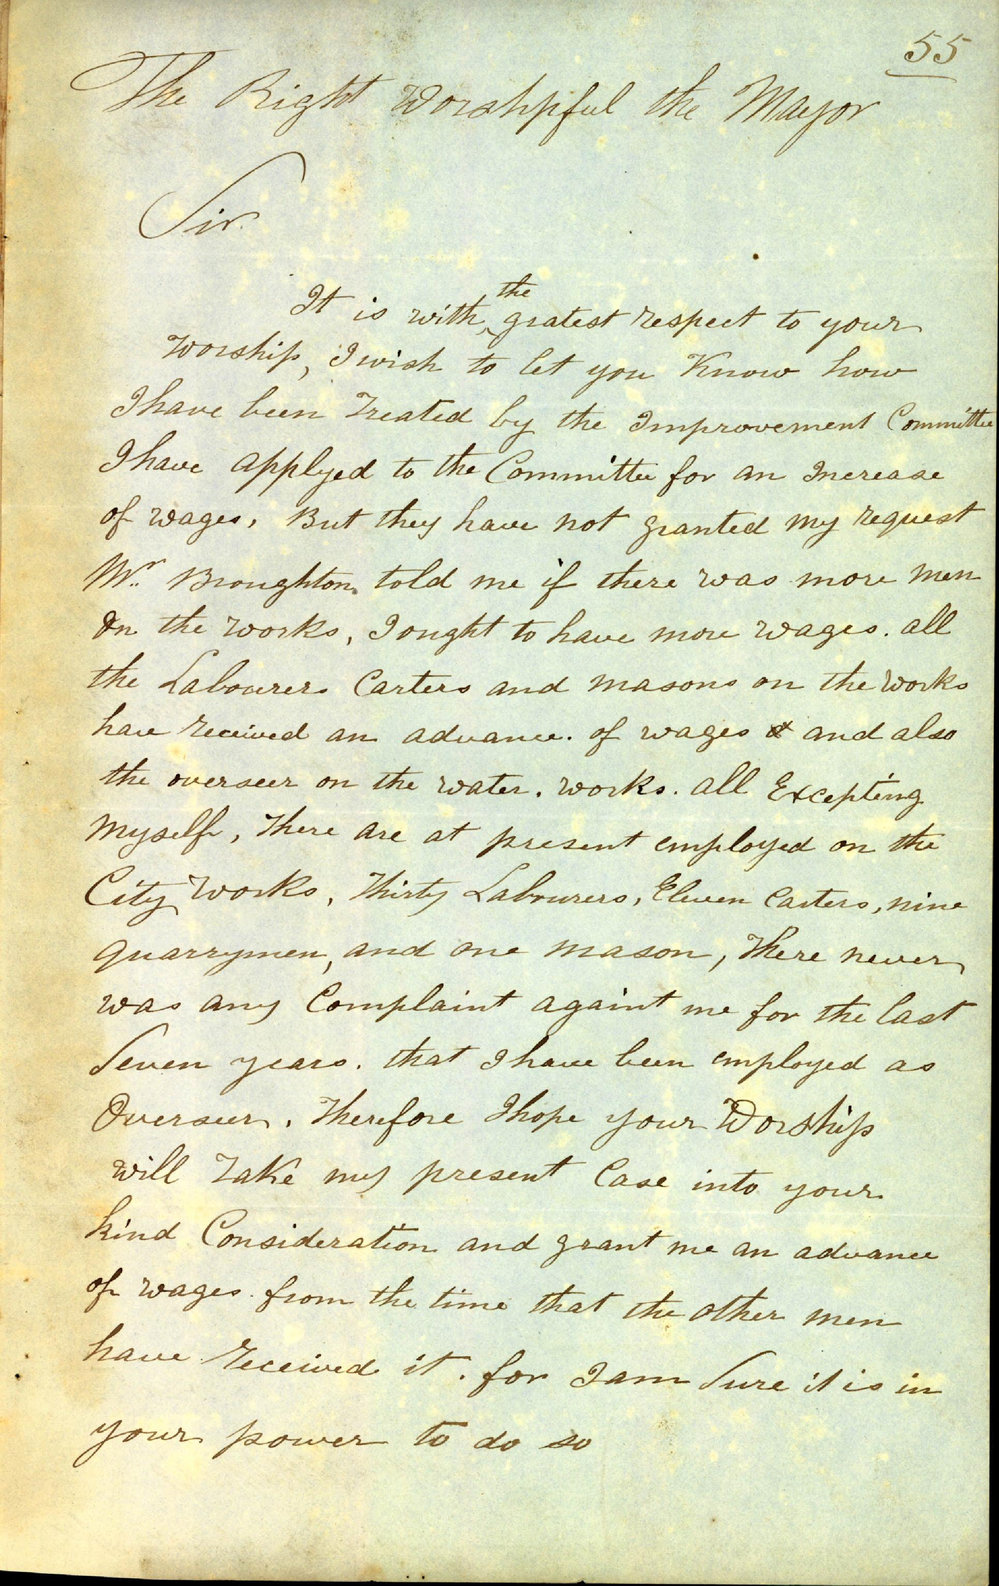 55
The Right Worshpful the Mayor
Sir.
the
It is with gratest respect to your
worship, I wish to let you Know how
I have been Treated by the Improvement Committee
I have applyed to the Committee for an Increase
of wages, But they have not granted my request
Mr. Broughton told me if there was more men
On the works, I ought to have more wages. all
the Labourers Carters and masons on the works
have received an advance. of wages and also
the overseer on the water. works. all Excepting
Myself, There are at present employed on the
City Works, Thirty Labourers, Eleven Carters, nine
Quarrymen, and one mason, There never
was any Complaint againt me for the last
Seven years. that I have been employed as
Overseer. Therefore I hope your Worship
will Take my present Case into your
kind Consideration and grant me an advance
of wages from the time that the other men
have received it. for I am Sure it is in
your power to do so